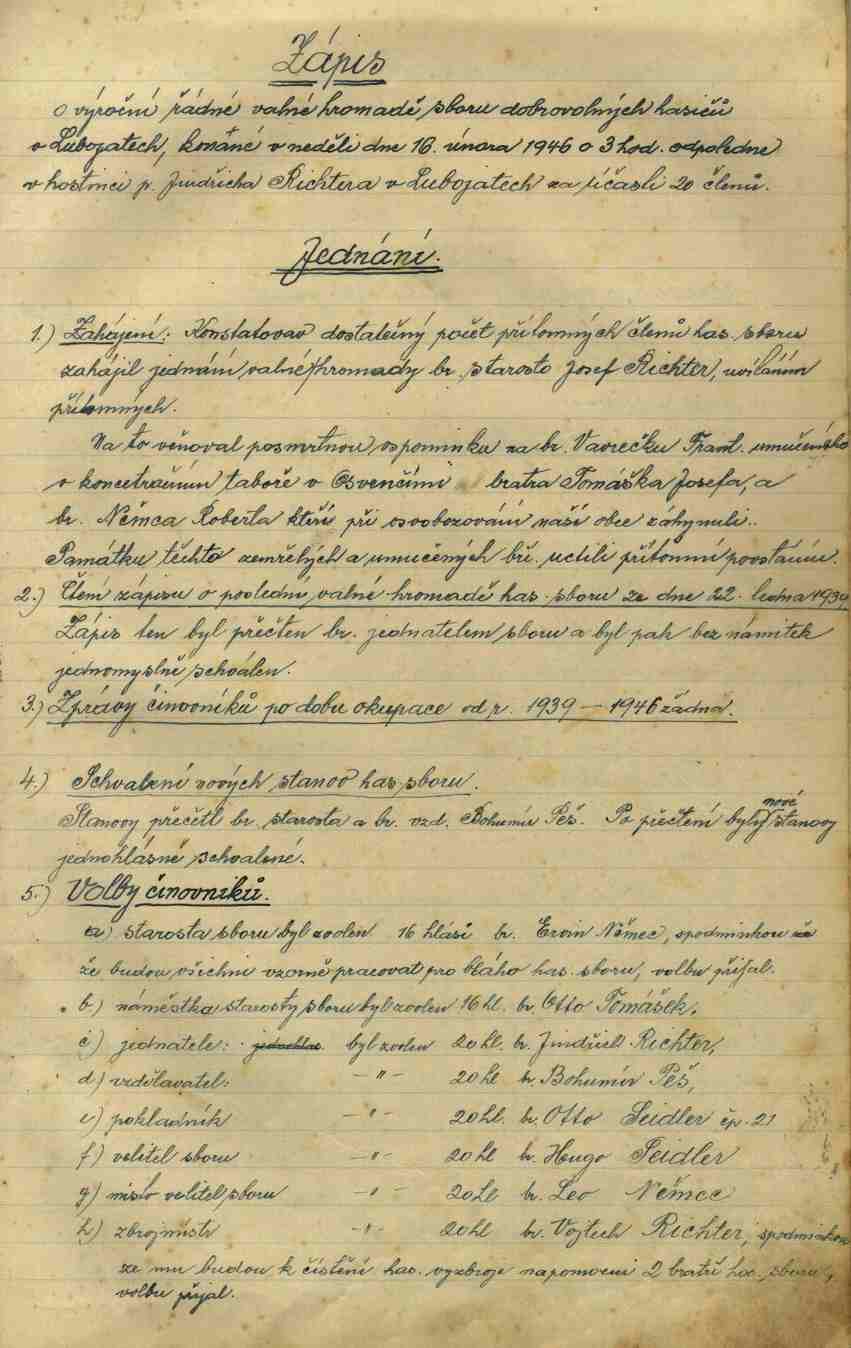 Zápis
o výroční řádné valné hromadě sboru dobrovolných hasičů
v Lubojatech, konané v neděli dne 16. února 1946 o 3 hod. odpoledne
v hostinci p. Jindřicha Richtera v Lubojatech za účasti 20 členů.
Jednání.
1.) Zahájení: Konstatovav dostatečný počet přítomných členů has. sboru
zahájil jednání valné hromady br. starosto Josef Richter, uvítáním
přítomných.
Na to věnoval posmrtnou vspominku za br. Vavrečku Frant. umučeného
v koncetračním taboře v Osvenčimi bratra Tomáška Josefa, a
br. Němca Roberta kteří při osvobozování naší obce záhynuli..
Památku těchto zemřelých a umučených bří. uctili přítomní povstáním.
2.) Čtení zápisu o poslední valné hromadě has. sboru ze dne 22. ledna 1939
Zápis ten byl přečten br. jednatelem sboru a byl pak bez námitek
jednomyslně schválen.
3.) Zprávy činovníků po dobu okupace od r. 1939 — 1946 žádná.
4.) Schvalení nových stanov has. sboru.
Stanovy přečetl br. starosta a br. vzd. Bohumír Peš. Po přečtení byly nové stanovy
jednohlásně schvalené.
5.) Volby činovníků.
a) starosta sboru byl zvolen 16 hlási br. Ervin Němec, spodminkou že
že budou všichni vzorně pracovat pro bláho has. sboru, volbu přijal.
b.) náměstka starosty sboru byl zvolen 16 hl. br. Otto Tomášek.
c) jednatele: byl zvolen 20 hl. br. Jindřich Richter,
d) vzdělavatel: —"— 20 hl br. Bohumír Peš,
e) pokladník —"— 20 hl. br. Otto Seidler čp. 21
f) velitel sboru —"— 20 hl br. Hugo Seidler
g) místo velitel sboru —"— 20 hl br. Leo Němec
h) zbrojmistr —"— 20 hl br. Vojtech Richter, spodminkou
že mu budou k čístění has. vyzbroje napomocni 2 bratří has. sboru,
volbu přijal.